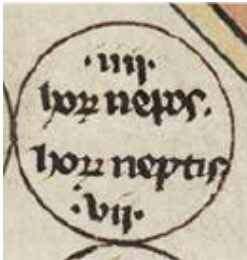 ·iiij·
horꝝ nepos.
horꝝ neptis
·vij·